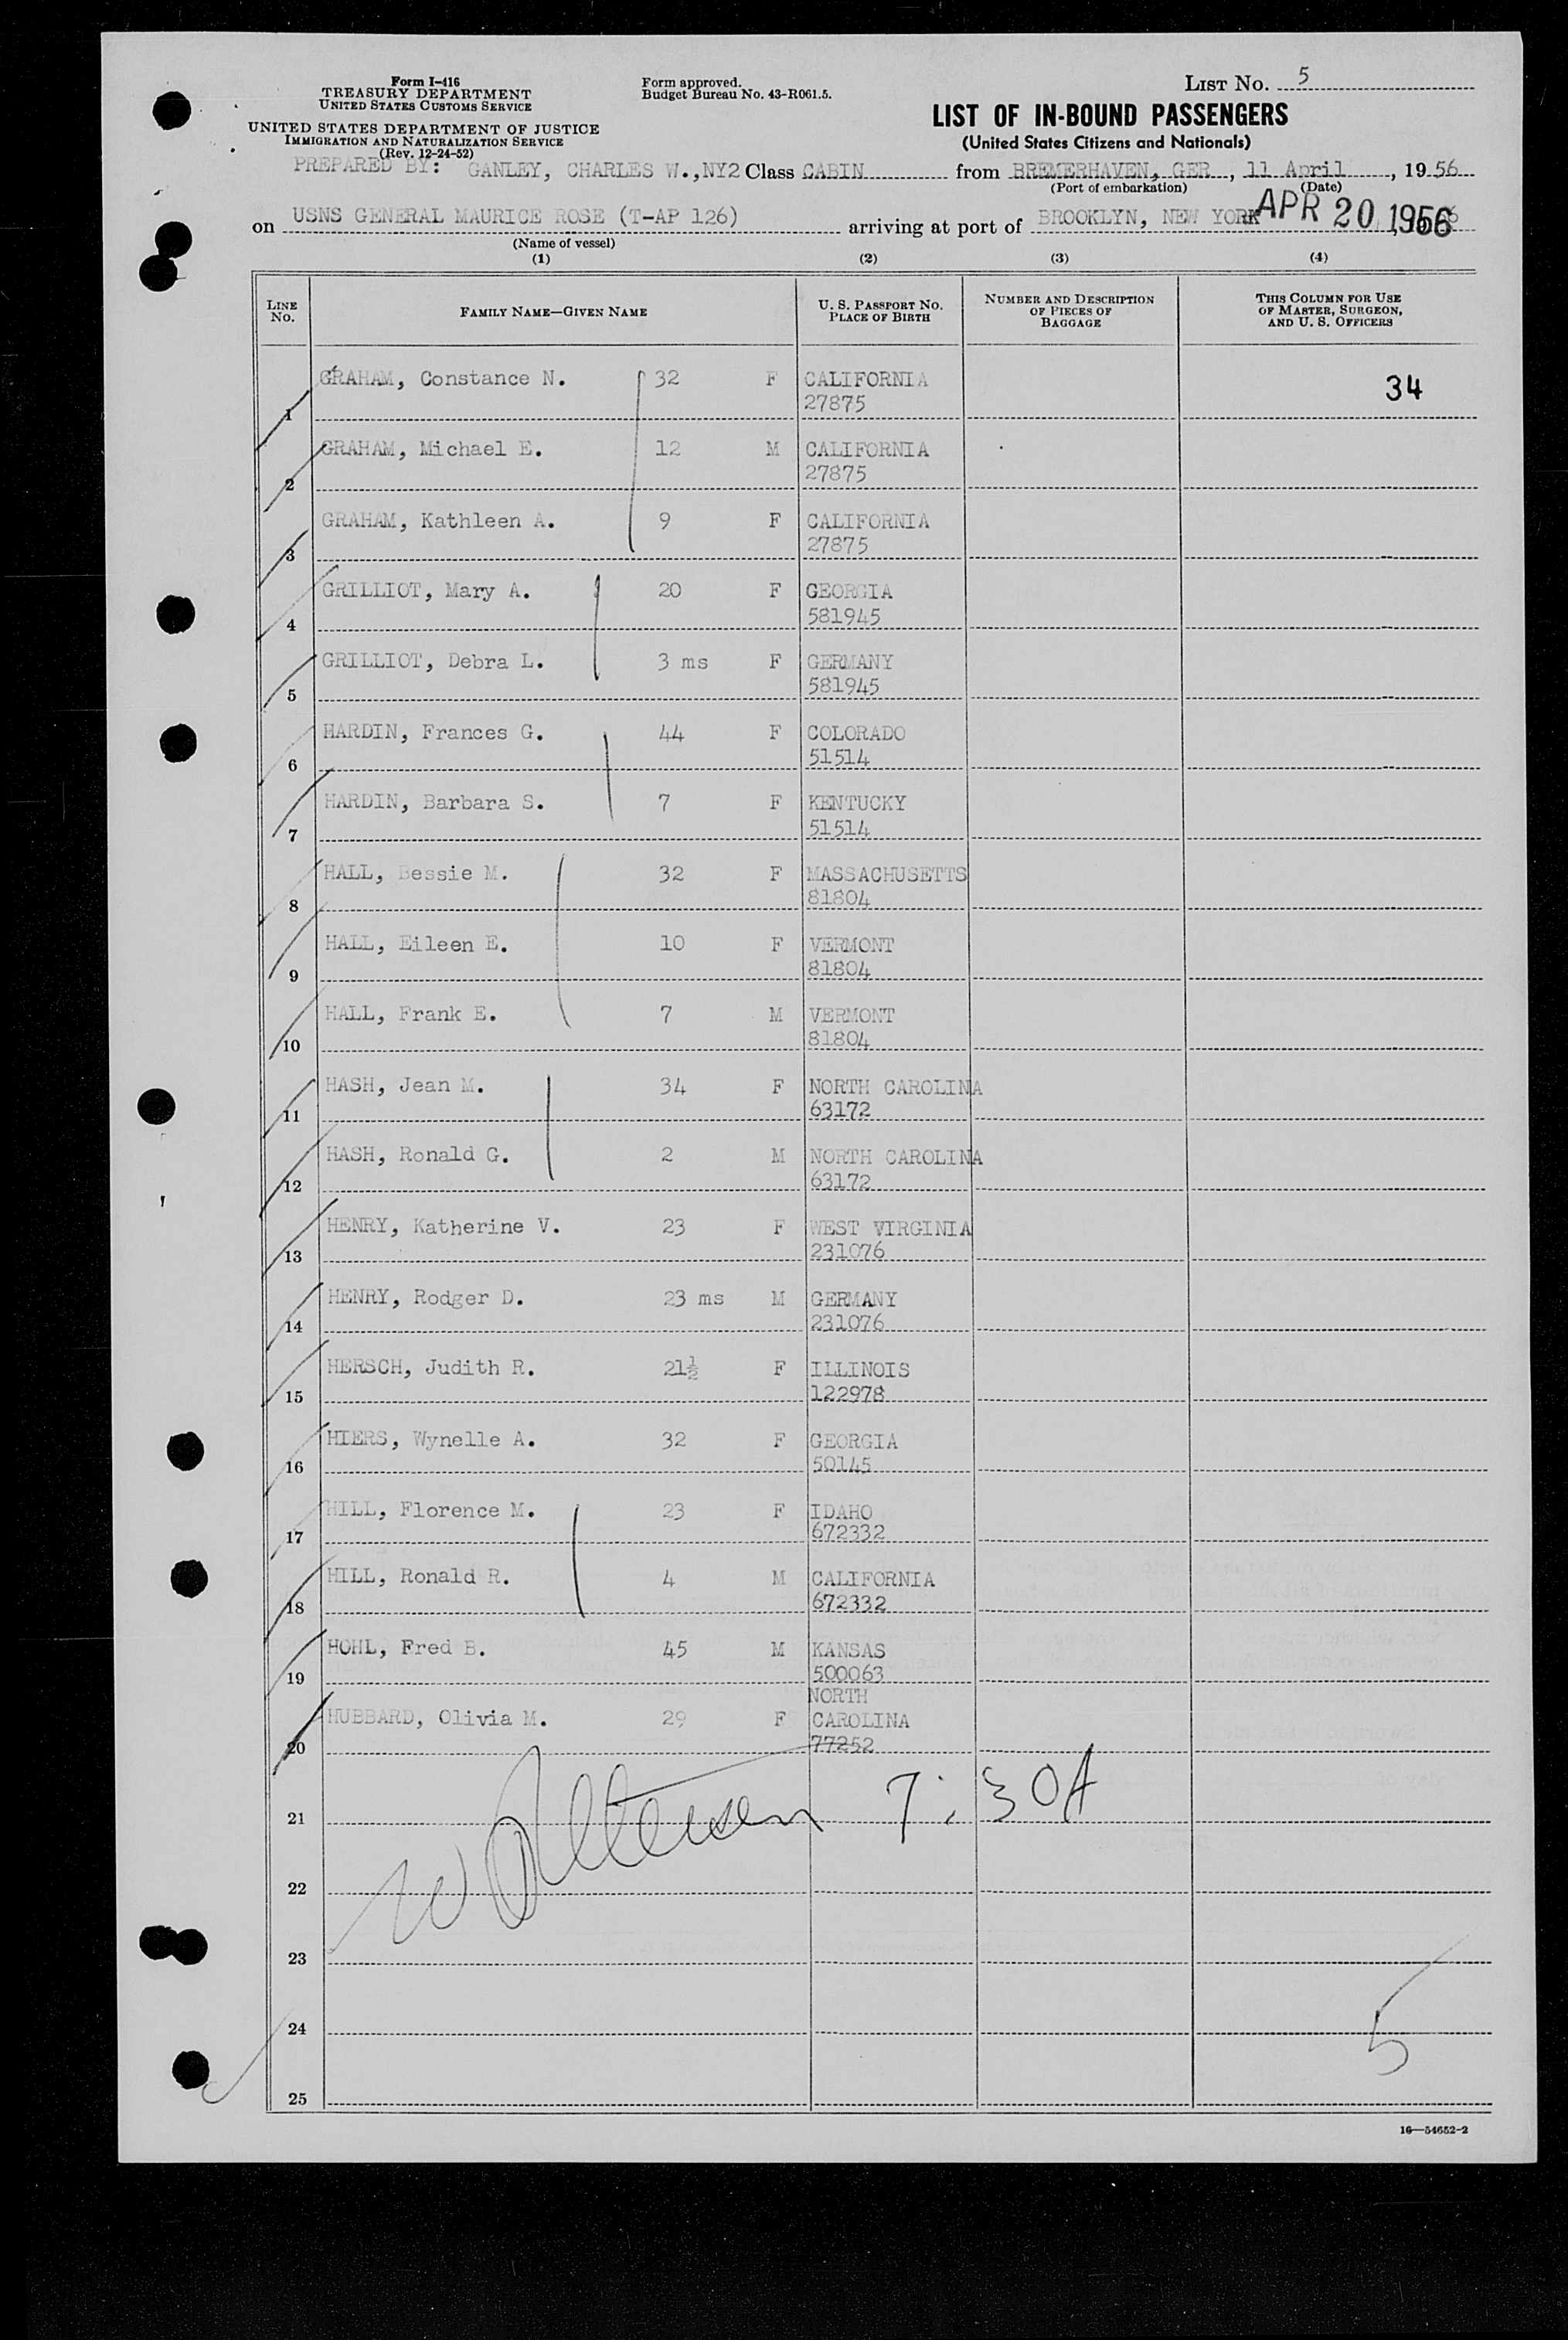 Form I-416
TREASURY DEPARTMENT
UNITED STATES CUSTOMS SERVICE
UNITED STATES DEPARTMENT OF JUSTICE
IMMIGRATION AND NATURALIZATION SERVICE
(Rev. 12-24-52)
Form approved.
Budget Bureau No. 43-R061.5.
LIST No. 5
LIST OF IN-BOUND PASSENGERS
(United States Citizens and Nationals)
PREPARED BY: GANLEY, CHARLES W.,NY2 Class CABIN from BREMERHAVEN, GER., 11 April, 1956
(Port of embarkation) (Date)
on USNS GENERAL MAURICE ROSE (T-AP 126) arriving at port of BROOKLYN, NEW YORK APR 20 1956
(Name of vessel)
(1) (2) (3) (4)
LINE No. FAMILY NAME—GIVEN NAME U. S. PASSPORT NO. PLACE OF BIRTH NUMBER AND DESCRIPTION OF PIECES OF BAGGAGE THIS COLUMN FOR USE OF MASTER, SURGEON, AND U. S. OFFICERS
GRAHAM, Constance N. 32 F CALIFORNIA 34
1 27875
GRAHAM, Michael E. 12 M CALIFORNIA
2 27875
GRAHAM, Kathleen A. 9 F CALIFORNIA
3 27875
GRILLIOT, Mary A. 20 F GEORGIA
4 581945
GRILLIOT, Debra L. 3 ms F GERMANY
5 581945
HARDIN, Frances G. 44 F COLORADO
6 51514
HARDIN, Barbara S. 7 F KENTUCKY
7 51514
HALL, Bessie M. 32 F MASSACHUSETTS
8 81804
HALL, Eileen E. 10 F VERMONT
9 81804
HALL, Frank E. 7 M VERMONT
10 81804
HASH, Jean M. 34 F NORTH CAROLINA
11 63172
HASH, Ronald G. 2 M NORTH CAROLINA
12 63172
HENRY, Katherine V. 23 F WEST VIRGINIA
13 231076
HENRY, Rodger D. 23 ms M GERMANY
14 231076
HERSCH, Judith R. 21½ F ILLINOIS
15 122978
HIERS, Wynelle A. 32 F GEORGIA
16 50145
HILL, Florence M. 23 F IDAHO
17 672332
HILL, Ronald R. 4 M CALIFORNIA
18 672332
HOHL, Fred B. 45 M KANSAS
19 500063
NORTH
HUBBARD, Olivia M. 29 F CAROLINA
20 77252
7:30A
21
22
23
24 5
25
16—54652-2